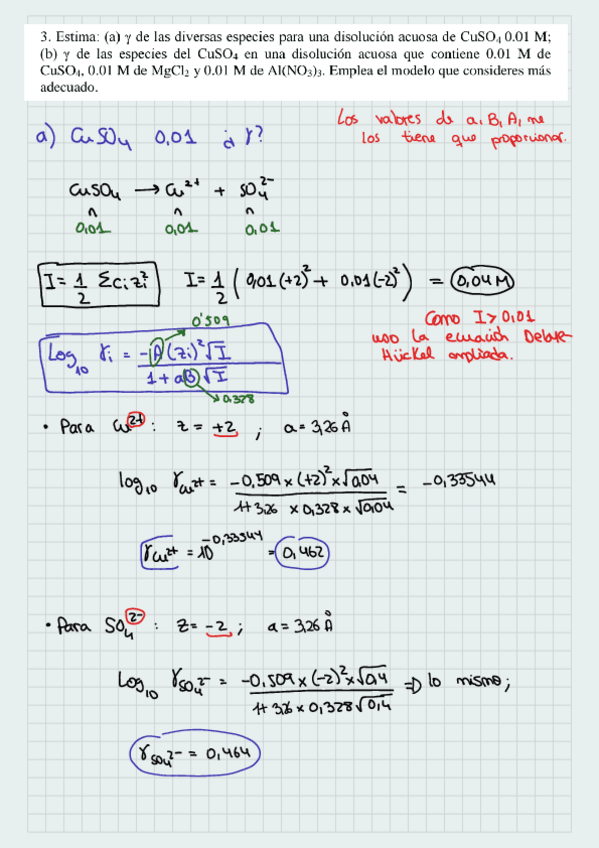 3. Estima: (a) γ de las diversas especies para una disolución acuosa de CuSO₄ 0.01 M;
(b) γ de las especies del CuSO₄ en una disolución acuosa que contiene 0.01 M de
CuSO₄, 0.01 M de MgCl₂ y 0.01 M de Al(NO₃)₃. Emplea el modelo que consideres más
adecuado.
Los valores de a, B, A, me
los tiene que proporcionar.
a) CuSO₄ 0,01 ¿γ?
CuSO₄ → Cu²⁺ + SO₄²⁻
0,01 0,01 0,01
I = 1/2 Σcᵢzᵢ² I = 1/2 (0,01(+2)² + 0,01(-2)²) = 0,04 M
Como I > 0,01
uso la ecuación Debye-
Hückel ampliada.
0'509
Log₁₀ γᵢ = -A(zᵢ)²√I / 1 + aB√I
0,328
• Para Cu²⁺: z = +2 ; a = 3,26 Å
log₁₀ γCu²⁺ = -0,509 × (+2)² × √0,04 / 1 + 3,26 × 0,328 × √0,04 = -0,33544
γCu²⁺ = 10^-0,33544 = 0,462
• Para SO₄²⁻ : z = -2 ; a = 3,26 Å
Log₁₀ γSO₄²⁻ = -0,509 × (-2)² × √0,4 / 1 + 3,26 × 0,328√0,4 ⇒ lo mismo;
γSO₄²⁻ = 0,464